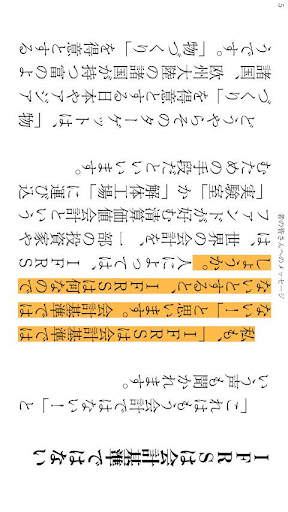 若い皆さんへのメッセージ
IFRSは会計基準ではない
「これはもう会計ではない！」と
いう声も聞かれます。
私も、「IFRSは会計基準では
ない！」と思います。会計基準では
ないとすると、IFRSは何なので
しょうか。人によっては、IFRS
は、世界の会計を、一部の投資家や
ファンドが好む清算価値会計という
「実験室」か「解体工場」に運び込
むための手段だといいます。
どうやらそのターゲットは、「物
づくり」を得意とする日本やアジア
諸国、欧州大陸の諸国が持つ富のよ
うです。「物づくり」を得意とする
5